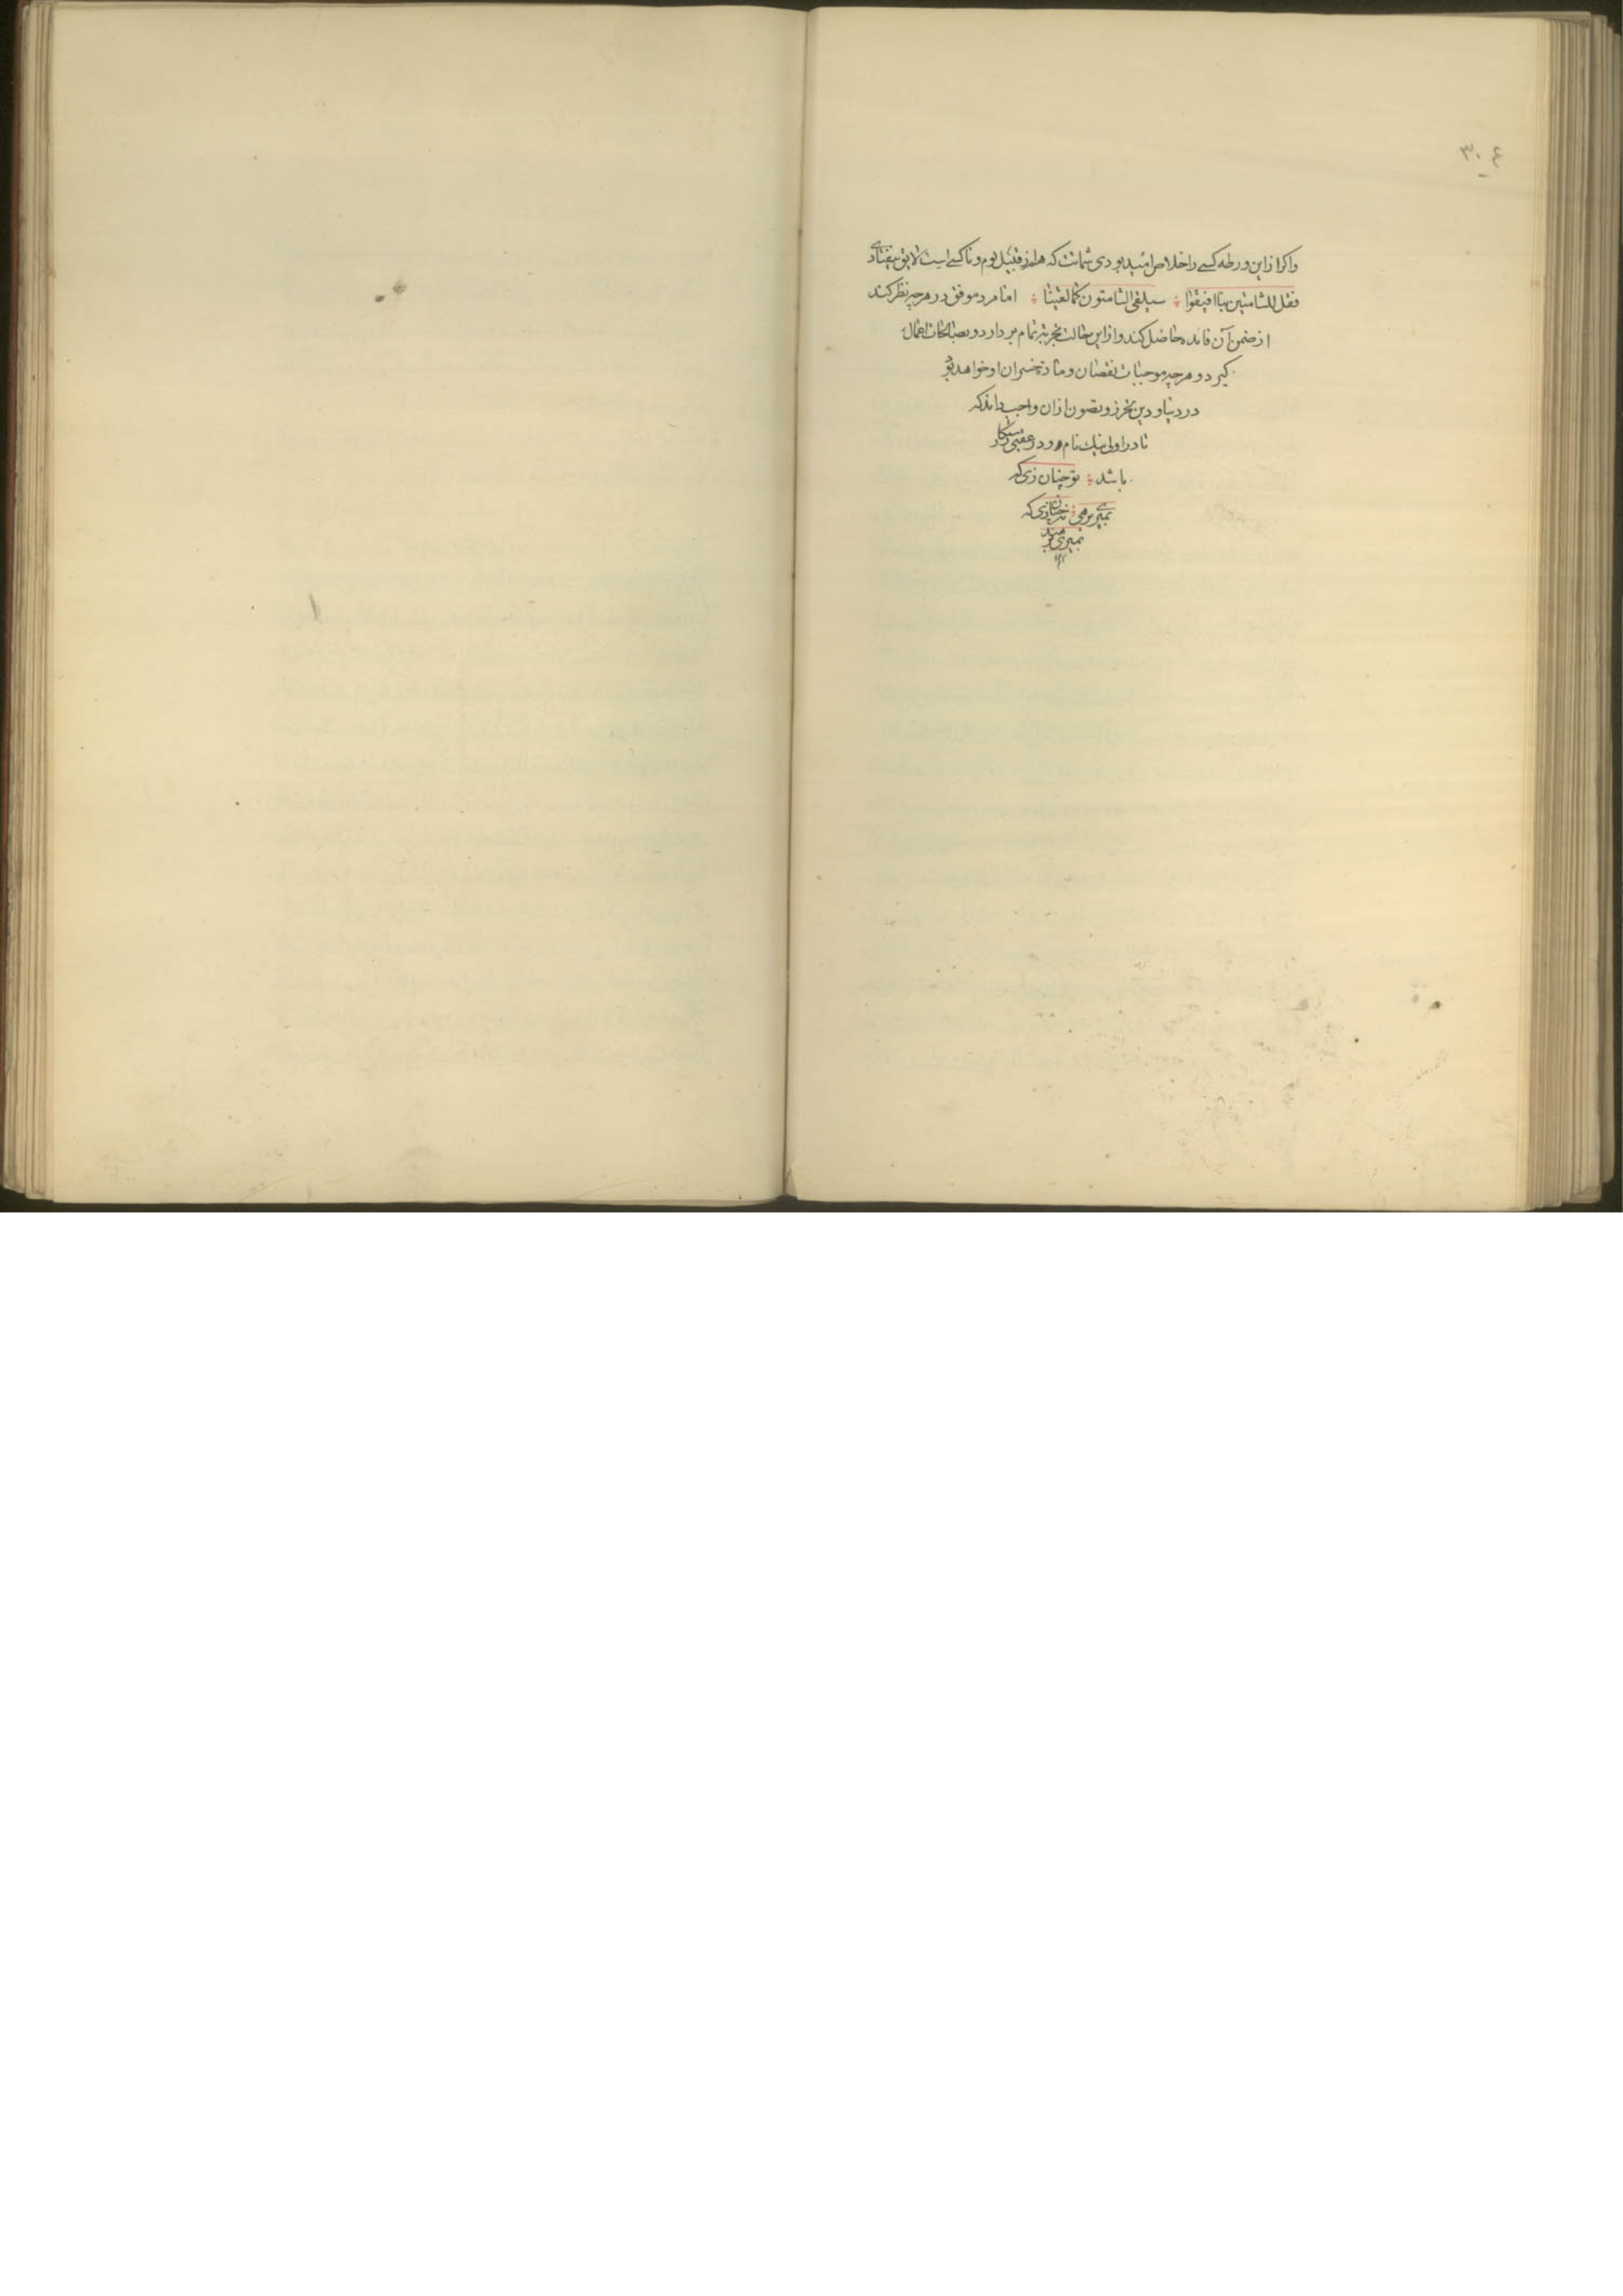 ۳۰۴
واکر ازاین ورطه کسی را خلاص امید بودی شماتت که هم از قبیل لوم و ناکسی است لایق بیفتادی
فقل للشامتین بنا افیقوا ؛ سیلقی الشامتون کما لقینا ؛ اما مرد موفق در هرچه نظر کند
از ضمن آن فائده حاصل کند و از این حالت تجربه تمام بردارد و بصالحات اعمال
کیرد و هرچه موجبات نقصان و مادة خسران او خواهد بود
در دنیا و دین تحرز و تصون ازان واجب داند که
تا در اولی نیك نام و در عقبی رستکار
باشد ؛ تو چنان زی که
بمیری برهی ؛ نه چنان زی که
بمیری برهند